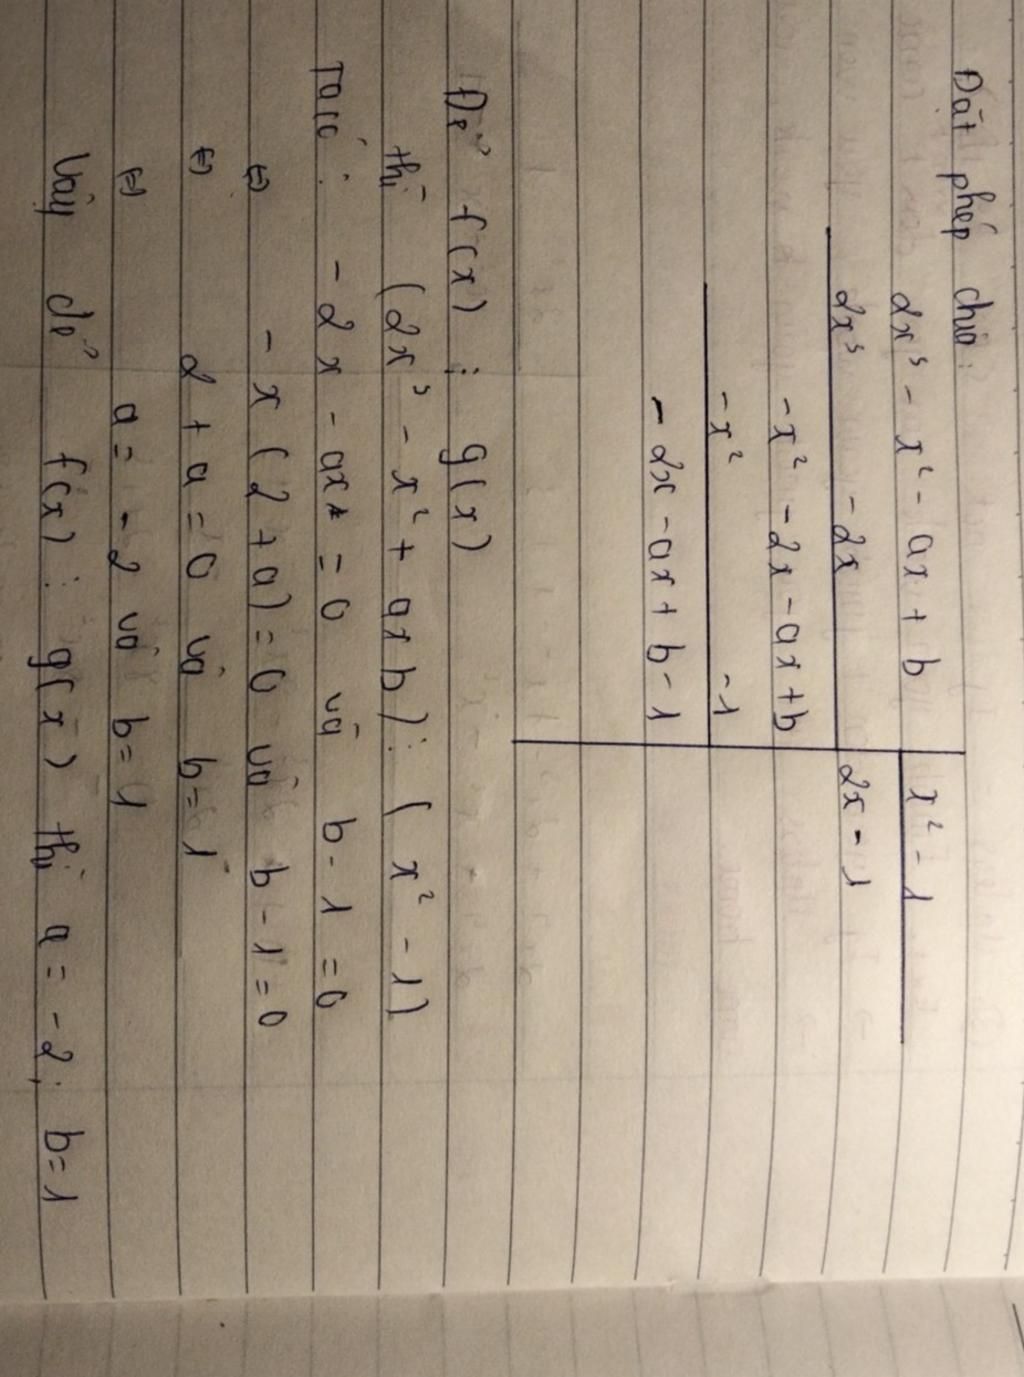 Đặt phép chia:
2x³ - x² - ax + b | x² - 1
2x³ - 2x | 2x - 1
-x² - 2x - ax + b
-x² -1
- 2x - ax + b - 1
Để f(x) ⋮ g(x)
thì (2x³ - x² + ax b) ⋮ ( x² - 1)
Ta có: - 2x - ax = 0 và b - 1 = 0
⇔ - x (2 + a) = 0 và b - 1 = 0
⇔ 2 + a = 0 và b = 1
⇔ a = - 2 và b = 1
Vậy để f(x) ⋮ g(x) thì a = - 2; b = 1